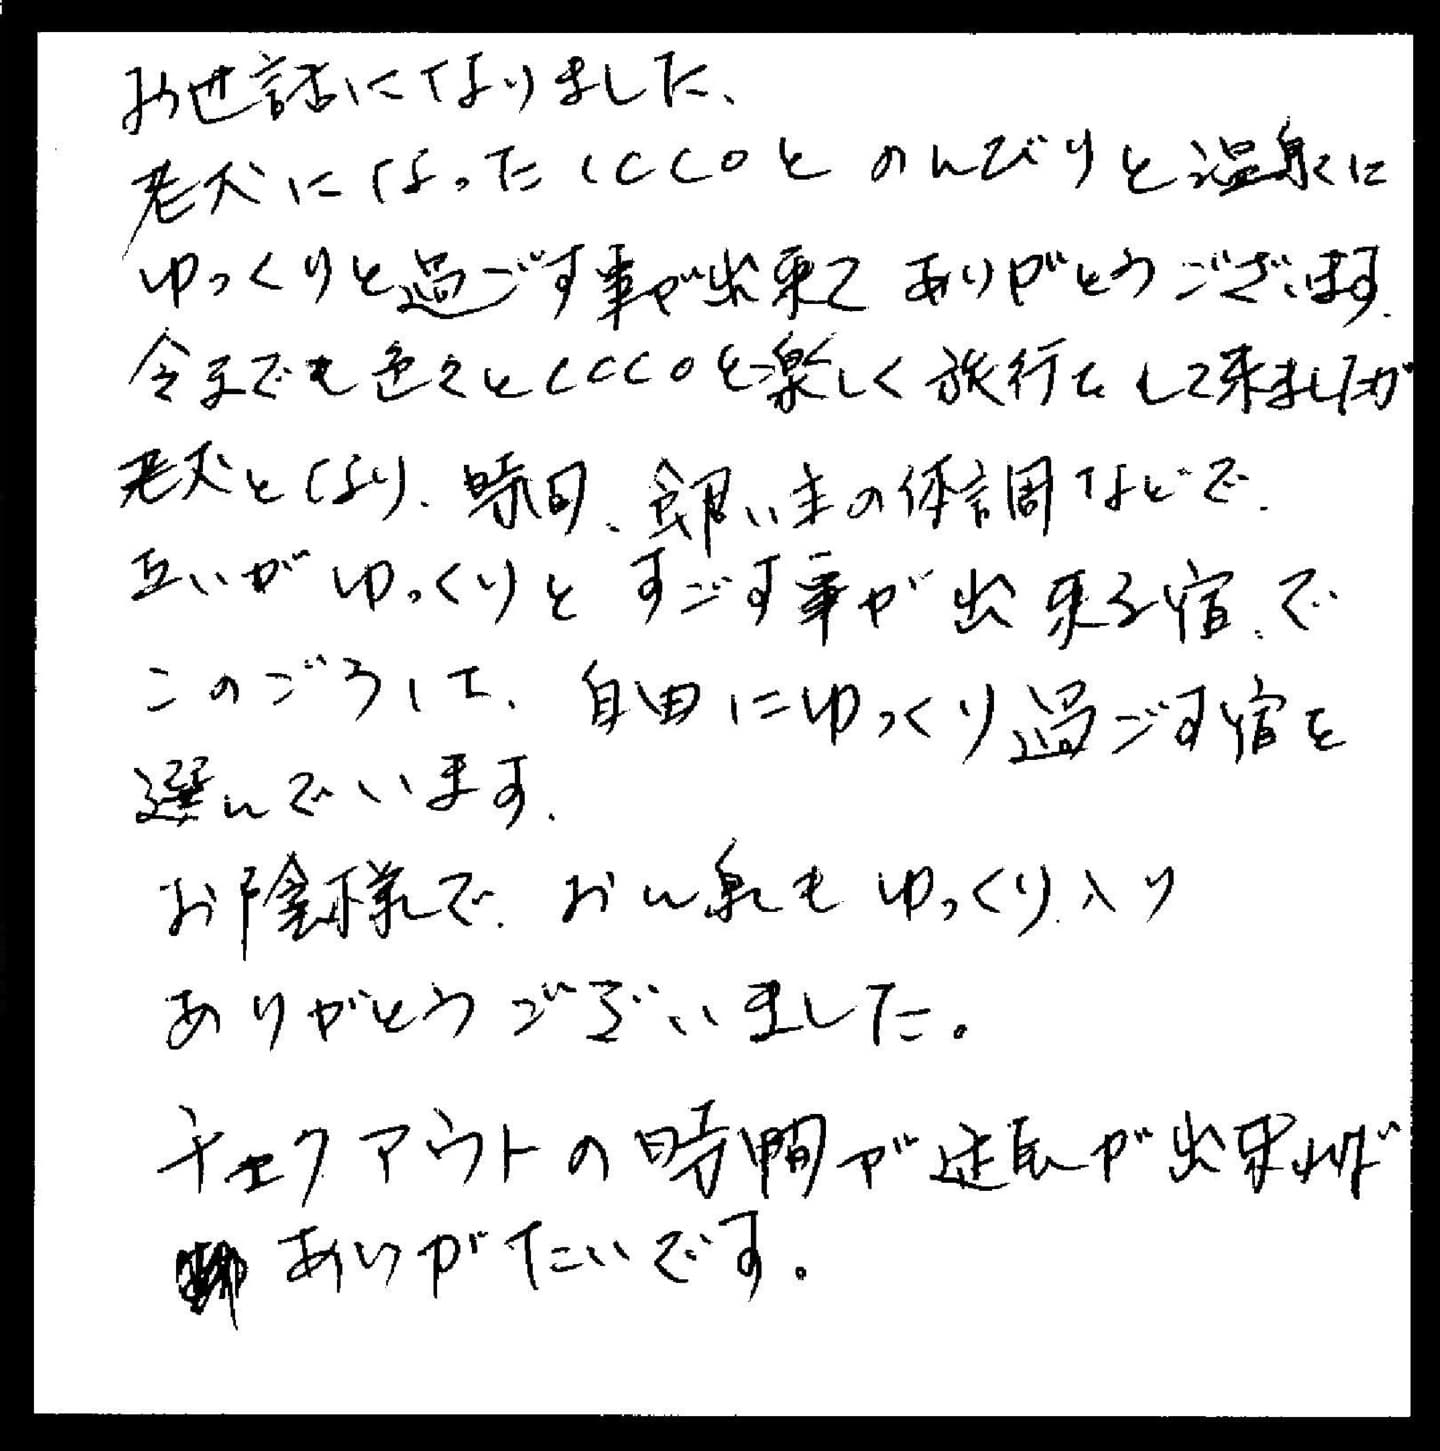 お世話になりました、
老犬になったCCCOとのんびりと温泉に
ゆっくりと過ごす事が出来てありがとうございます.
今までも色々とCCCOと楽しく旅行をして来ましたが
老犬となり、時間、飼い主の体調などで.
互いがゆっくりとすごす事が出来る宿、で
このごろして、自由にゆっくり過ごす宿を
選んでいます.
お陰様で、おん泉もゆっくり入り
ありがとうございました。
チェクアウトの時間が延長が出来れば
ありがたいです。